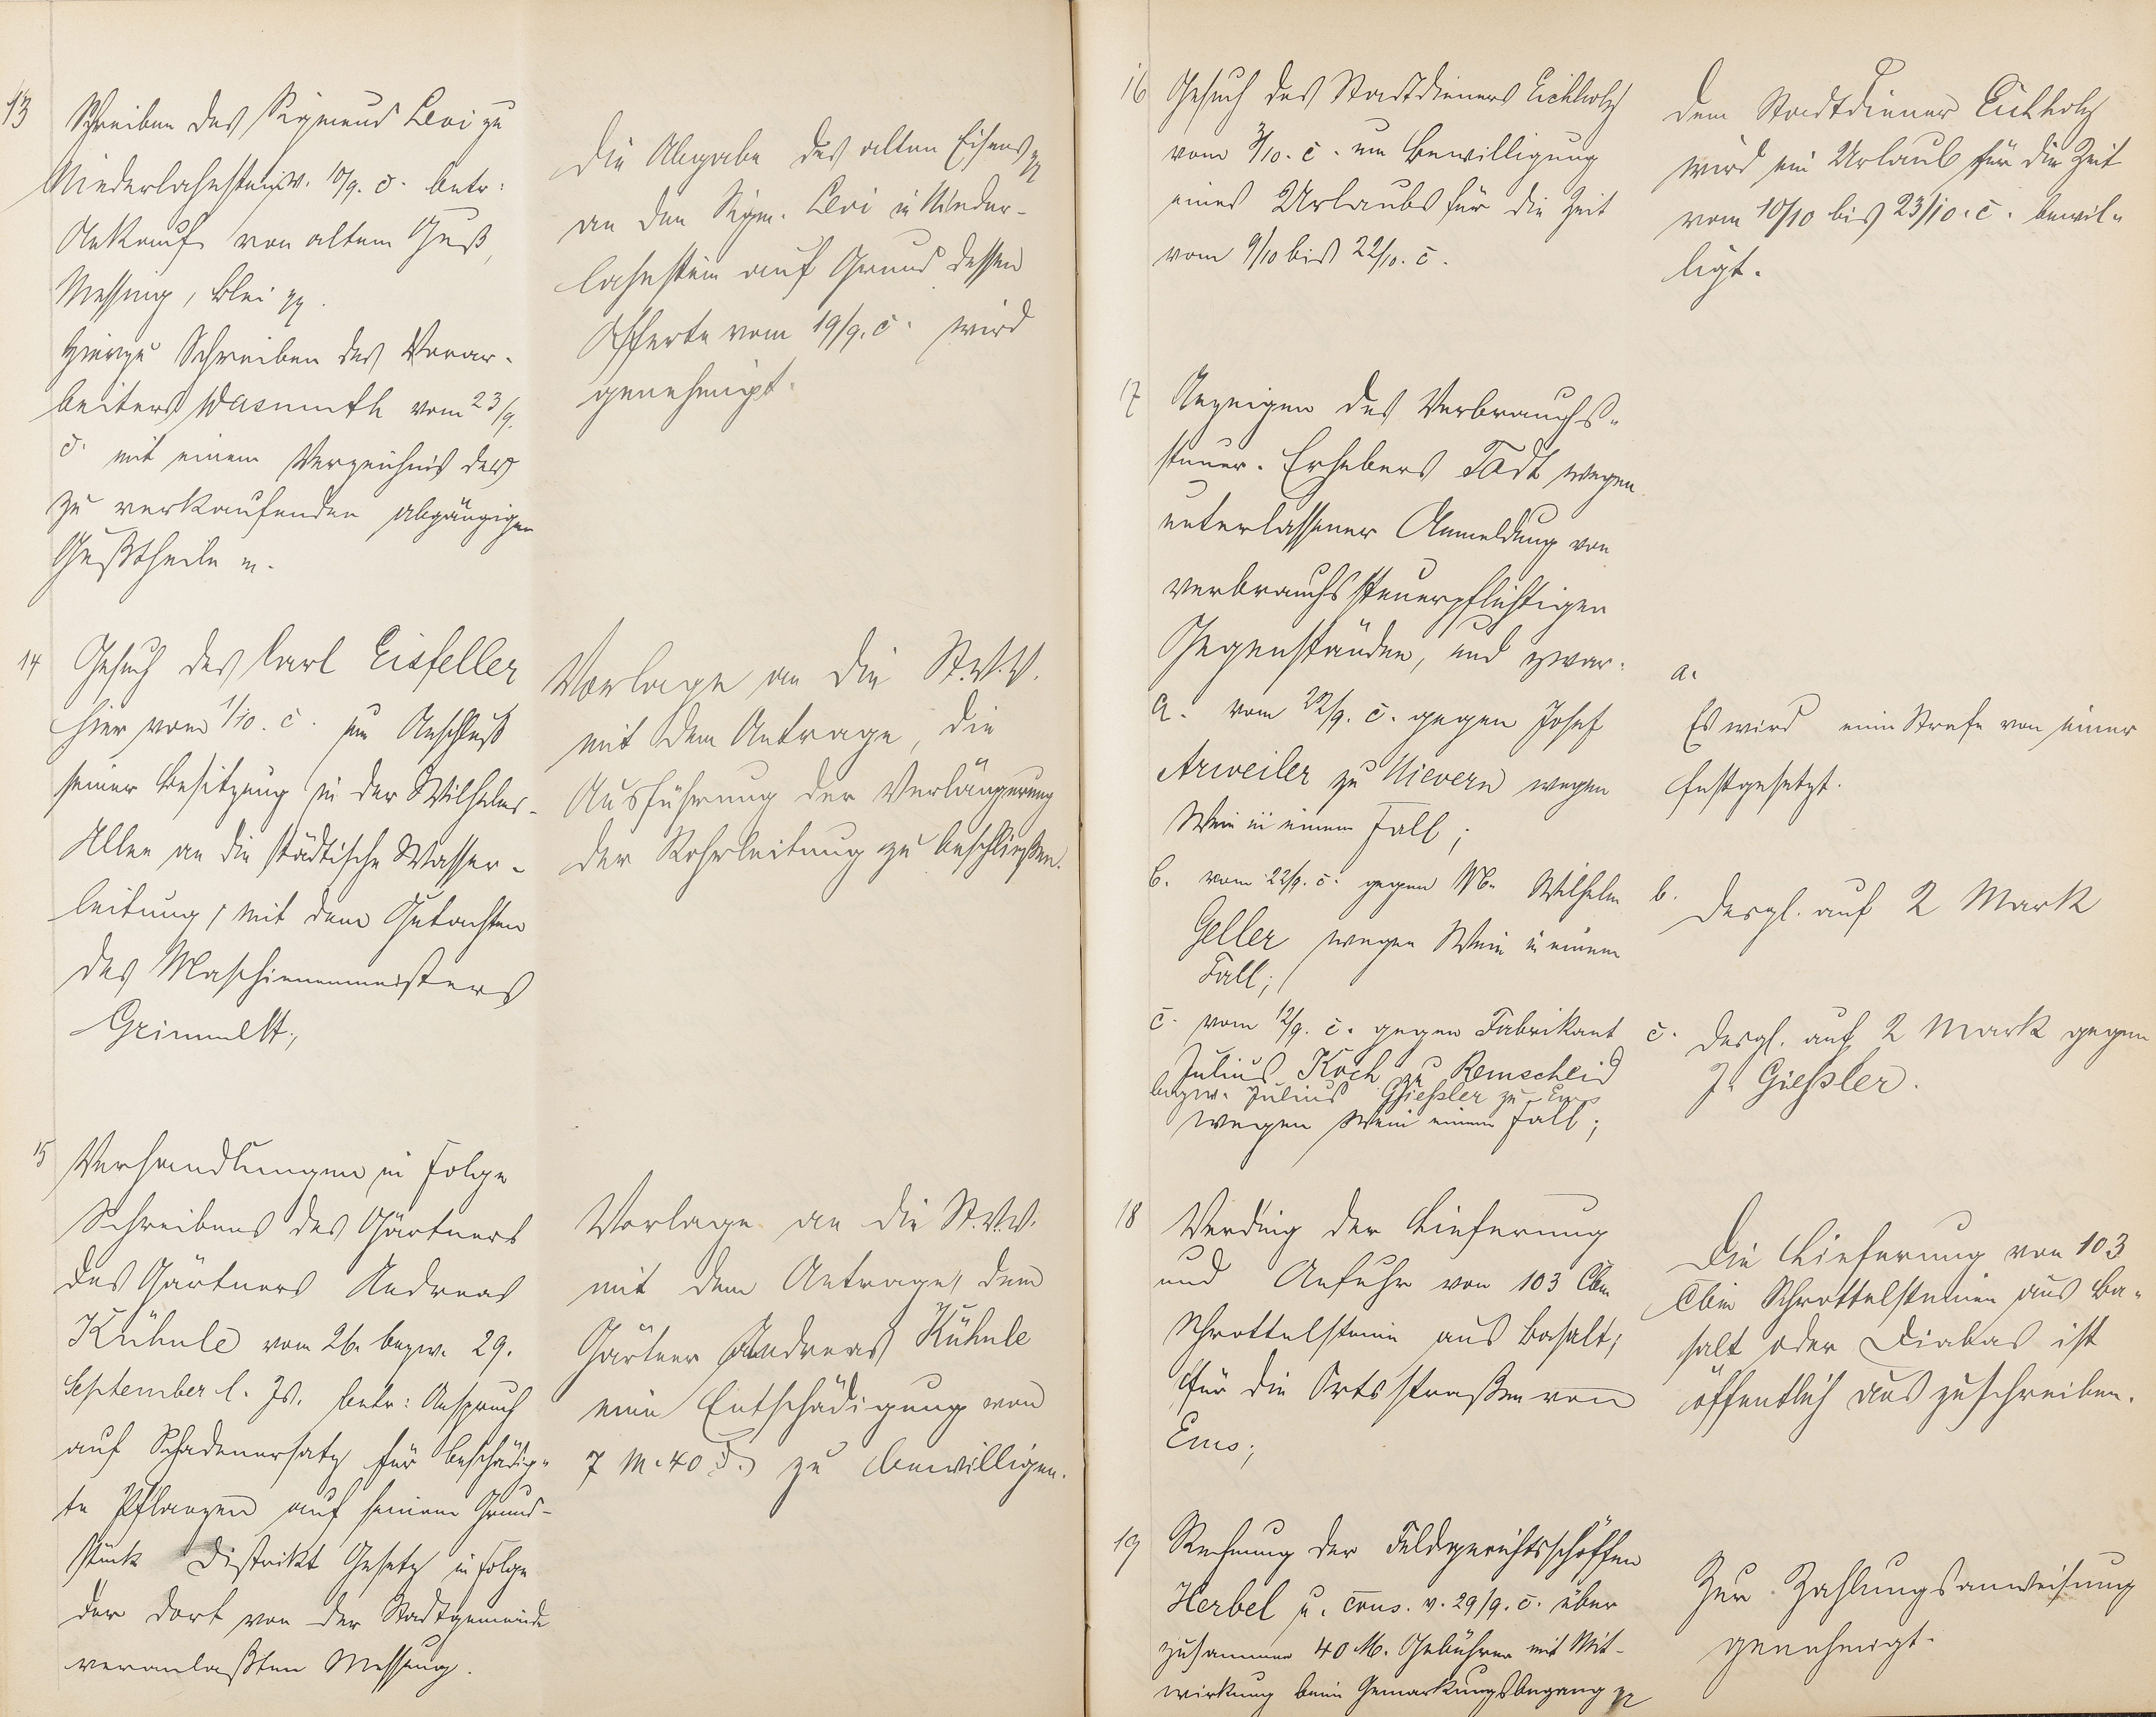 13
Schreiben des Sigmund Levi zu
Niederlahnstein v. 19/9. c. betr:
Ankauf von altem Guß,
Messing, Blei pp.
Hierzu Schreiben des Vorar-
beiters Wasmuth vom 23/9.
c. mit einem Verzeichnis der
zu verkaufenden abgängigen
Gußtheile
Die Abgabe des alten Eisens pp
an den Sigm. Levi in Nieder-
lahnstein auf Grund dessen
Offerte vom 19/9. c. wird
genehmigt.
14
Gesuch des Carl Eisfeller
hier vom 1/10. c. um Anschluß
seiner Besitzung in der Wilhelms-
Allee an die städtische Wasser-
leitung, mit dem Gutachten
des Maschienenmeisters
Grimmelt;
Vorlage an die St.V.V.
mit dem Antrage, die
Ausführung der Verlängerung
der Rohrleitung zu beschließen.
15
Verhandlungen in Folge
Schreibens des Gärtners
des Gärtners Andreas
Kühnle vom 26. bezw. 29.
September l. Js. betr: Anspruch
auf Schadenersatz für beschädig-
te Pflanzen auf seinem Grund-
stück Distrikt Gesetz in Folge
der dort von der Stadtgemeinde
veranlaßten Messung.
Vorlage an die St.V.V.
mit dem Antrage, dem
Gärtner Andreas Kühnle
eine Entschädigung von
7 M. 40 zu bewilligen.
16
Gesuch des Stadtdieners Eichholz
vom 3/10. c. um Bewilligung
eines Urlaubs für die Zeit
vom 9/10 bis 22/10. c.
Dem Stadtdiener Eichholz
wird ein Urlaub für die Zeit
vom 10/10 bis 23/10. c. bewil-
ligt.
17
Anzeigen des Verbrauchs-
steuer-Erhebers Todt wegen
unterlassener Anmeldung von
verbrauchssteuerpflichtigen
Gegenständen, und zwar:
a. vom 22/9. c. gegen Josef
Arweiler zu Nievern wegen
Wein in einem Fall;
b. vom 22/9. c. gegen Wilhelm
Geller wegen Wein in einem
Fall;
c. vom 12/9. c. gegen Fabrikant
Julius Koch zu Remscheid
bezw. Julius Gießler zu Ems
wegen Wein einem Fall;
a.
Es wird eine Strafe von einer
festgesetzt.
b. desgl. auf 2 Mark
c. desgl. auf 2 Mark gegen
J. Gießler.
18
Verding der Lieferung
und Anfuhr von 103 Cbm
Schrottelsteine aus Basalt,
für die Ortsstraßen von
Ems;
Die Lieferung von 103
Cbm Schrottelsteinen aus Ba-
salt oder Diabas ist
öffentlich auszuschreiben.
19
Rechnung der Feldgerichtsschöffen
Herbel u. Cons. v. 29/9. c. über
zusammen 40 M. Gebühren mit Mit-
wirkung beim Gemarkungsbegang pp
Zur Zahlungsanweisung
genehmigt.